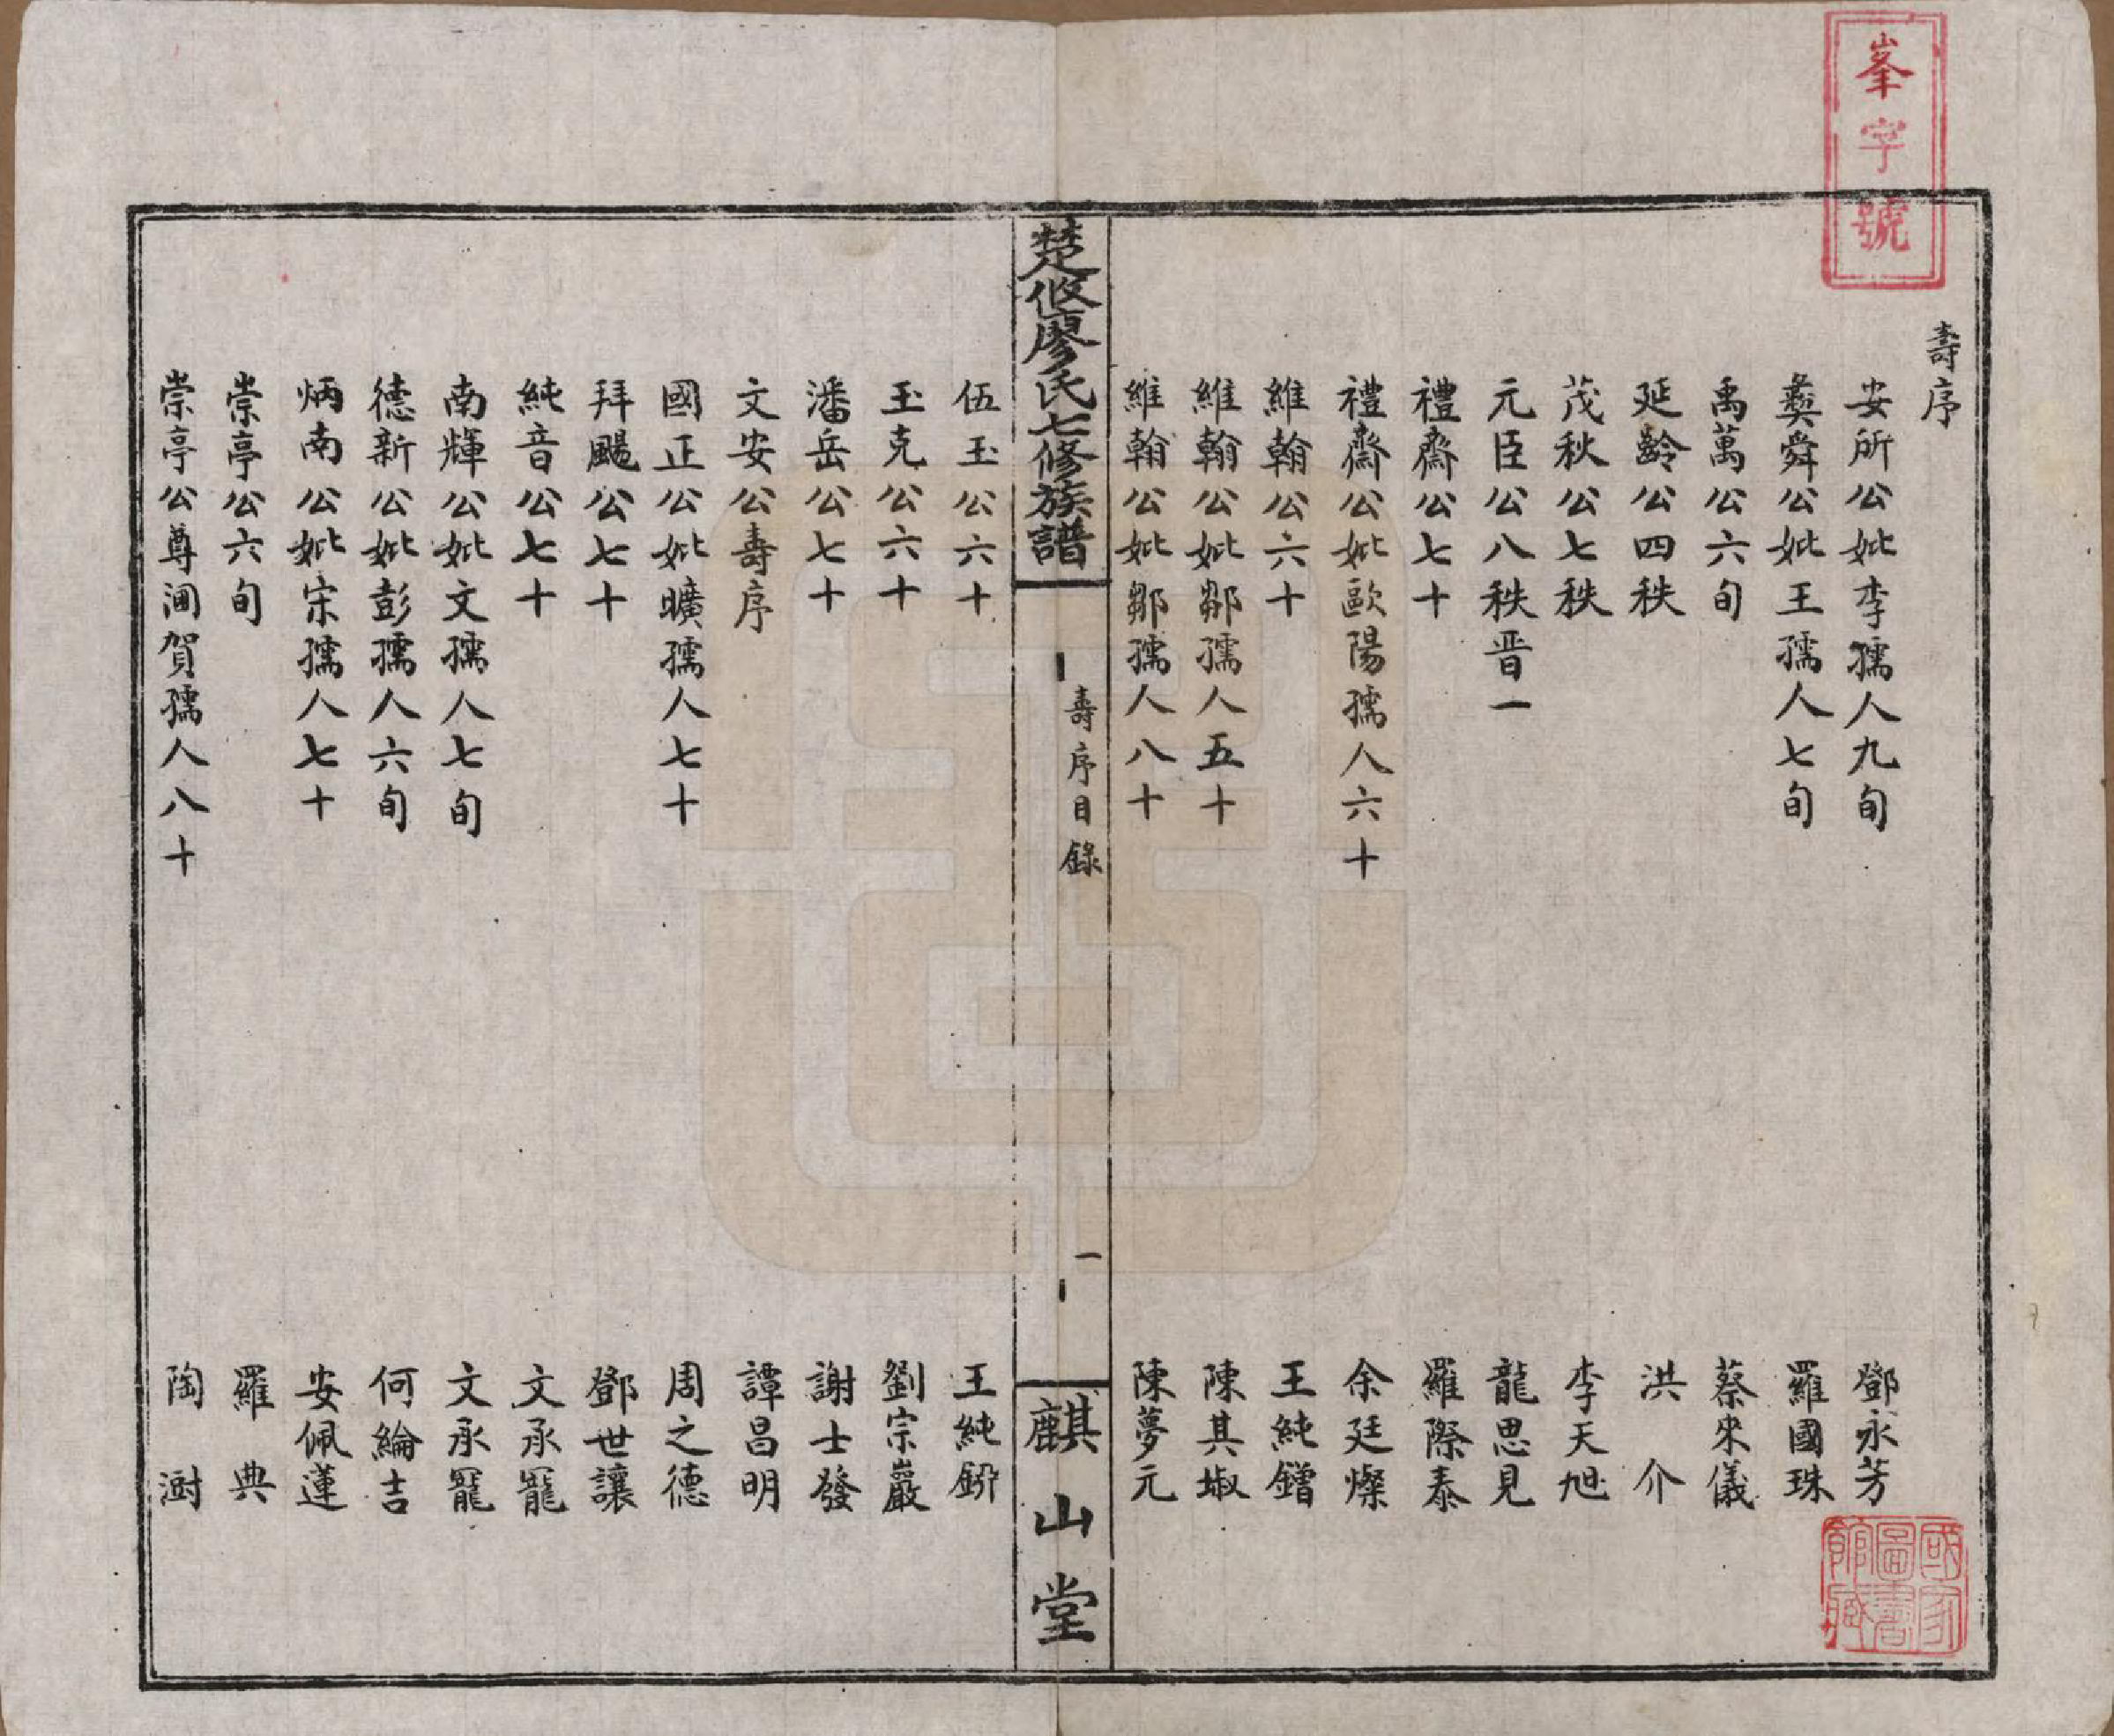 峯字號
壽序
安所公妣李孺人九旬 鄧永芳
彜舜公妣王孺人七旬 羅國珠
禹萬公六旬 蔡來儀
延齡公四秩 洪介
茂秋公七秩 李天旭
元臣公八秩晋一 龍思見
禮齋公七十 羅際泰
禮齋公妣歐陽孺人六十 余廷燦
維翰公六十 王純鐕
維翰公妣鄒孺人五十 陳其埱
維翰公妣鄒孺人八十 陳夢元
楚攸廖氏七修族譜
壽序目錄
一
麒山堂
伍玉公六十 王純
玉克公六十 劉宗巖
潘岳公七十 謝士發
文安公壽序 譚昌明
國正公妣曠孺人七十 周之德
拜颺公七十 鄧世讓
純音公七十 文承寵
南輝公妣文孺人七旬 文承寵
德新公妣彭孺人六旬 何綸吉
炳南公妣宗孺人七十 安佩蓮
崇亭公六旬 羅典
崇亭公尊閫賀孺人八十 陶澍
國家圖書館藏